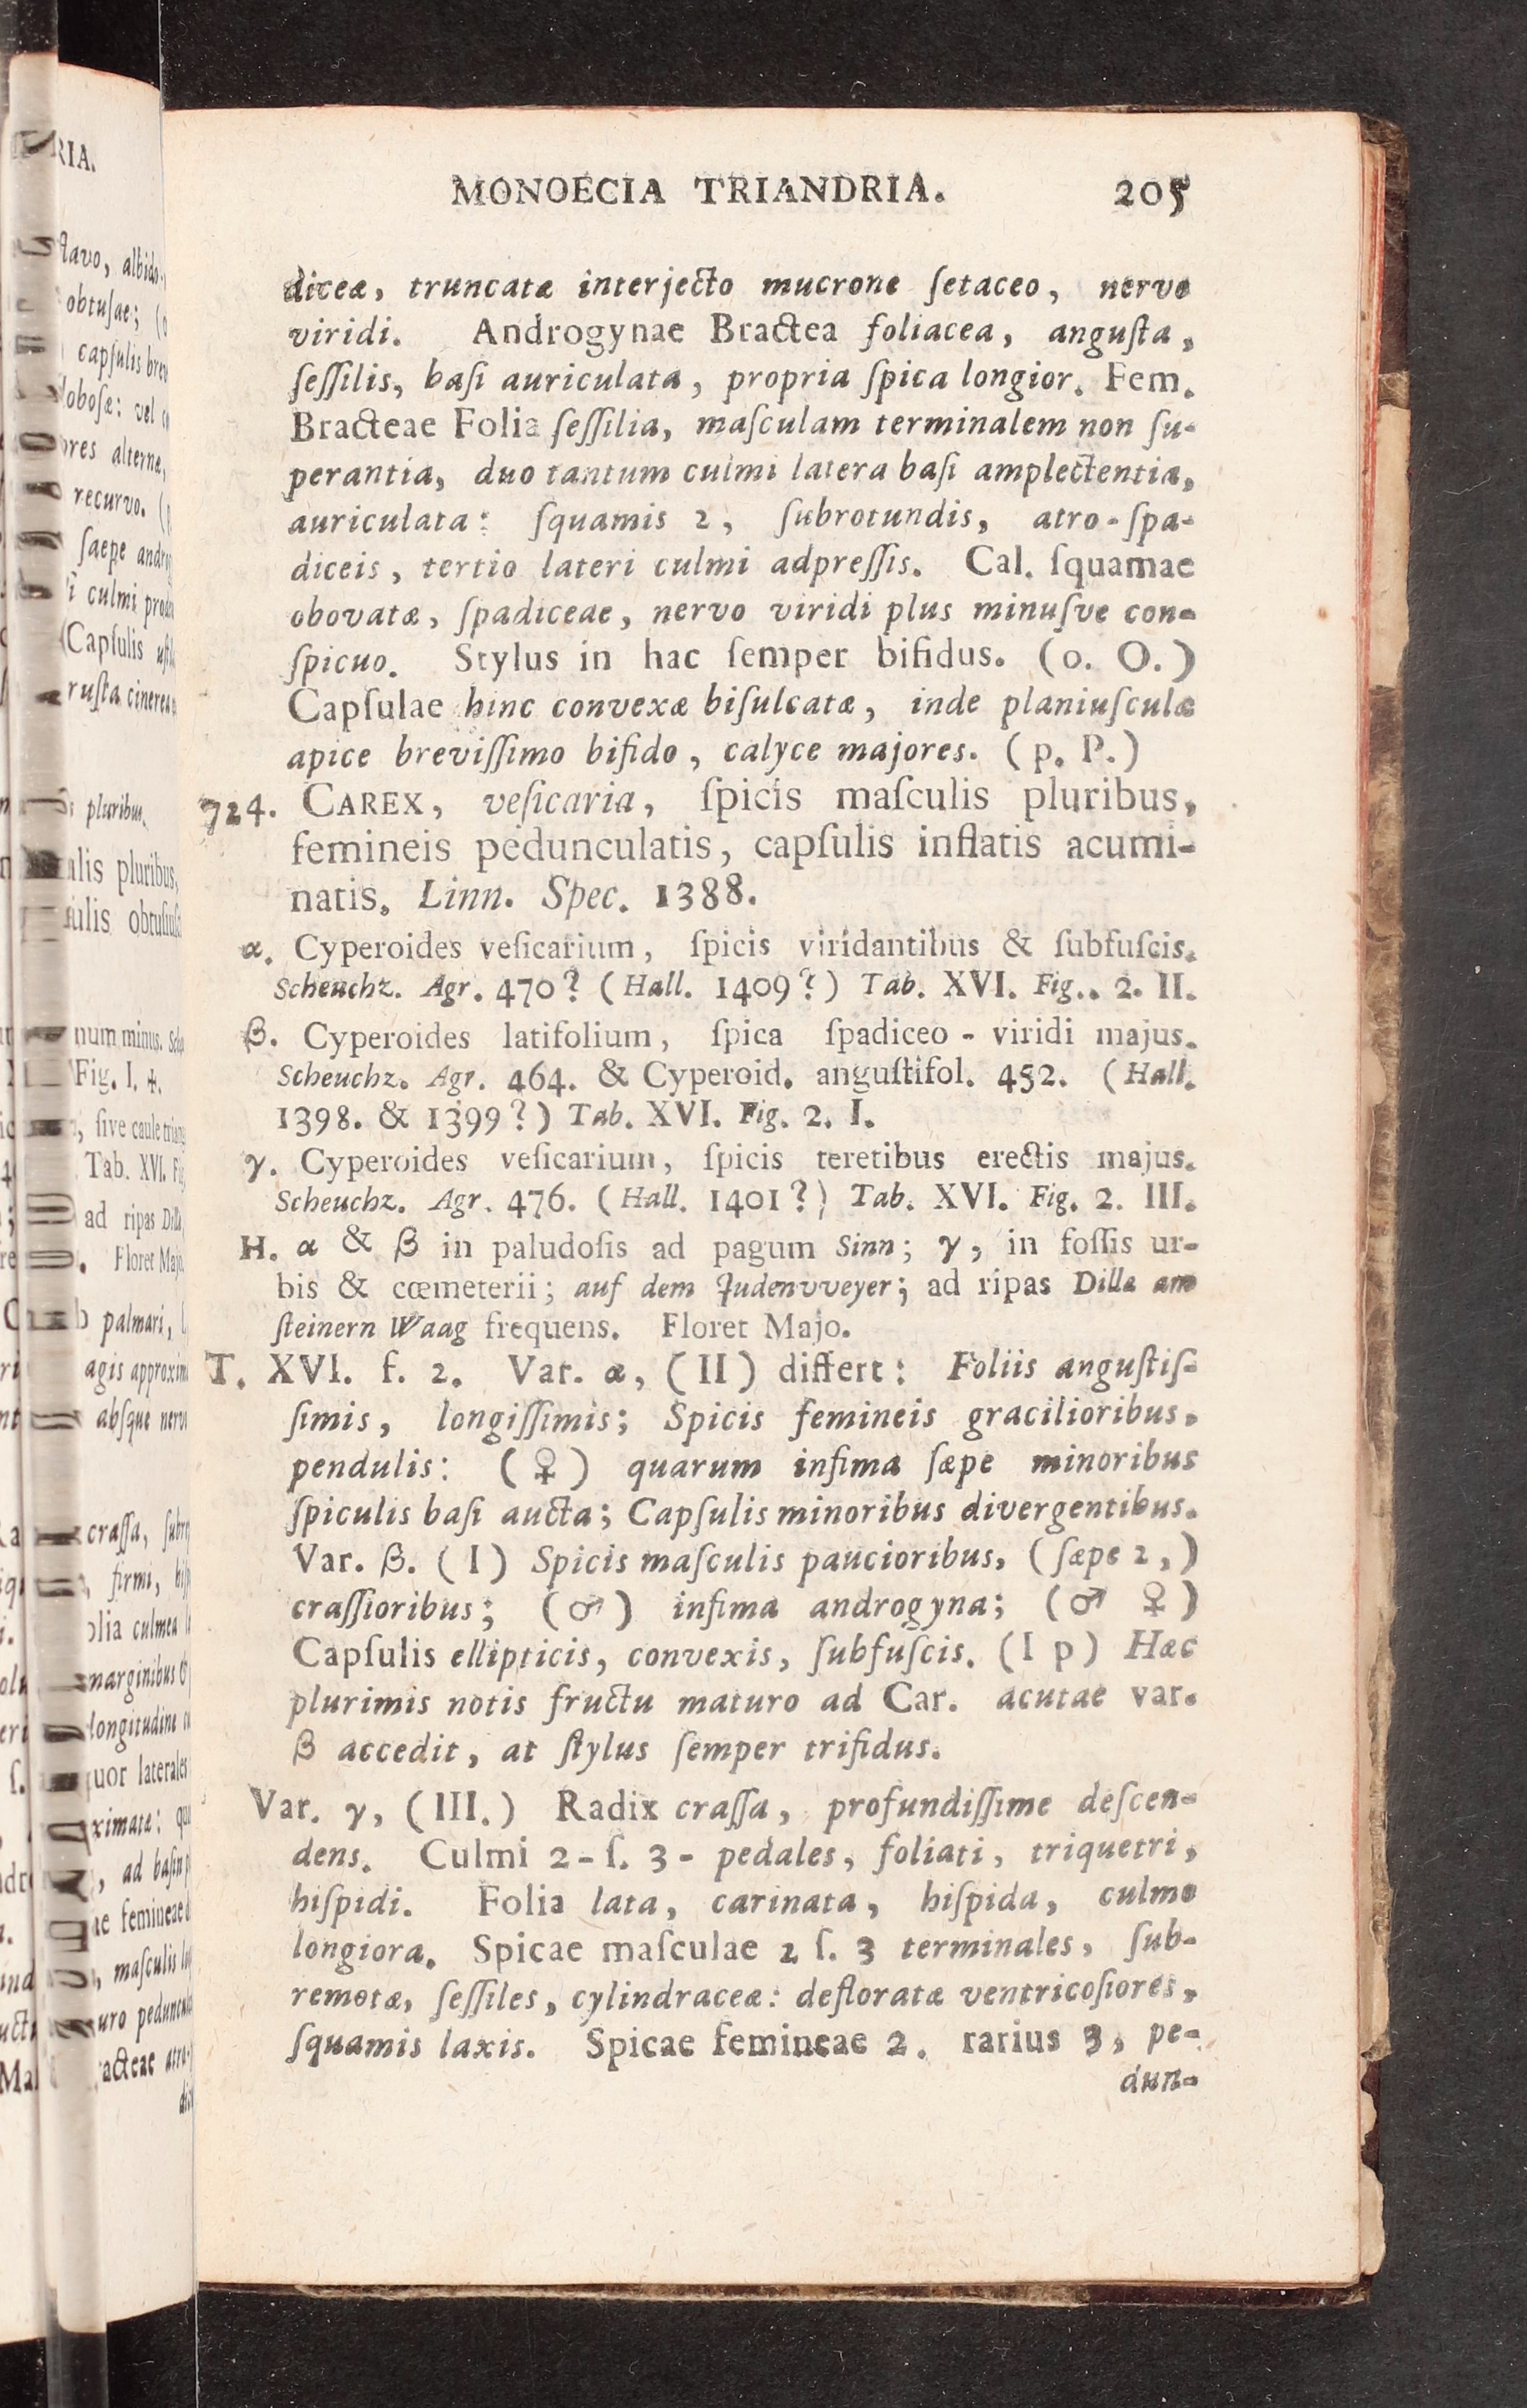 MONOECIA TRIANDRIA. 205
diceæ, truncatæ interjecto mucrone ſetaceo, nervo
viridi. Androgynae Bractea foliacea, anguſta,
ſeſſilis, baſi auriculata, propria ſpica longior. Fem.
Bracteae Folia ſeſſilia, maſculam terminalem non ſu-
perantia, duo tantum culmi latera baſi amplectentia,
auriculata: ſquamis 2, ſubrotundis, atro-ſpa-
diceis, tertio lateri culmi adpreſſis. Cal. ſquamae
obovatæ, ſpadiceae, nervo viridi plus minuſve con-
ſpicuo. Stylus in hac ſemper bifidus. (o. O.)
Capſulae hinc convexæ biſulcatæ, inde planiuſculæ
apice breviſſimo bifido, calyce majores. (p. P.)
724. CAREX, veſicaria, ſpicis maſculis pluribus,
femineis pedunculatis, capſulis inflatis acumi-
natis. Linn. Spec. 1388.
α. Cyperoides veſicarium, ſpicis viridantibus & ſubfuſcis.
Scheuchz. Agr. 470? (Hall. 1409?) Tab. XVI. Fig.. 2. II.
β. Cyperoides latifolium, ſpica ſpadiceo-viridi majus.
Scheuchz. Agr. 464. & Cyperoid. anguſtifol. 452. (Hall.
1398. & 1399?) Tab. XVI. Fig. 2. I.
γ. Cyperoides veſicarium, ſpicis teretibus erectis majus.
Scheuchz. Agr. 476. (Hall. 1401?) Tab. XVI. Fig. 2. III.
H. α & β in paludoſis ad pagum Sinn; γ, in foſſis ur-
bis & cœmeterii; auf dem Judenvveyer; ad ripas Dillæ am
ſteinern Waag frequens. Floret Majo.
T. XVI. f. 2. Var. α, (II) differt: Foliis anguſtiſ-
ſimis, longiſſimis; Spicis femineis gracilioribus,
pendulis: (♀) quarum infima ſæpe minoribus
ſpiculis baſi aucta; Capſulis minoribus divergentibus.
Var. β. (I) Spicis maſculis paucioribus, (ſæpe 2,)
craſſioribus; (♂) infima androgyna; (♂ ♀)
Capſulis ellipticis, convexis, ſubfuſcis. (I p) Hæc
plurimis notis fructu maturo ad Car. acutae var.
β accedit, at ſtylus ſemper trifidus.
Var. γ, (III.) Radix craſſa, profundiſſime deſcen-
dens. Culmi 2-ſ. 3-pedales, foliati, triquetri,
hiſpidi. Folia lata, carinata, hiſpida, culmo
longiora. Spicae maſculae 2 ſ. 3 terminales, ſub-
remotæ, ſeſſiles, cylindraceæ: defloratæ ventricoſiores,
ſquamis laxis. Spicae femineae 2. rarius 3, pe-
dun-